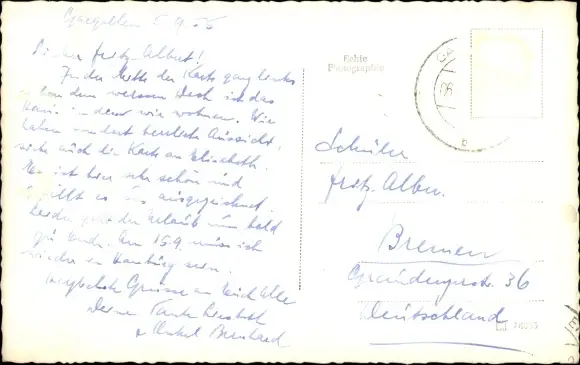 Gargellen 5.9.56
Lieber Fritz-Albert!
In der Mitte der Karte ganz links
von dem weissen Dach ist das
Haus in dem wir wohnen. Wir
haben herrliche Aussicht,
siehe auch die Karte an Elisabeth.
Es ist hier sehr schön und
gefällt es uns ausgezeichnet.
Leider geht der Urlaub nun bald
zu Ende. Am 15.9. muss ich
wieder in Hamburg sein.
Herzlichste Grüsse an Euch Alle
Deine Tante Liesbeth
u Onkel Bernhard
Echte
Photographie
Schüler
Fritz-Alber
Bremen
36
Deutschland